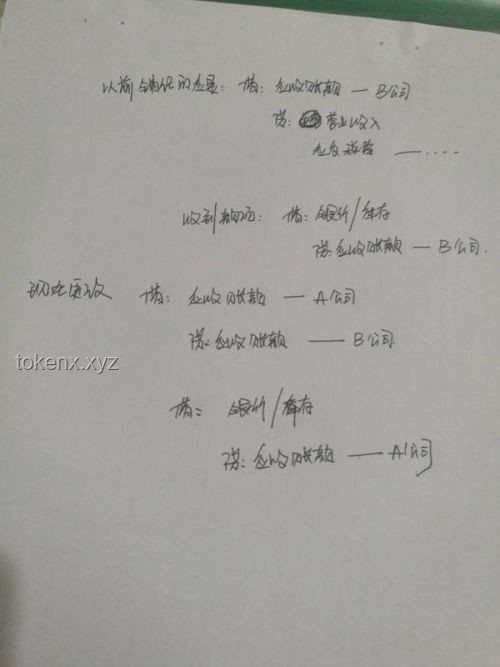 以前销化的应是: 借: 应收账款 — B公司
贷: 营业收入
应交税费 — ....
收到款后: 借: 银行/库存
贷: 应收账款 — B公司.
现在更改 借: 应收账款 — A公司
贷: 应收账款 — B公司.
tokenx.xyz
借: 银行/库存
贷: 应收账款 — A公司